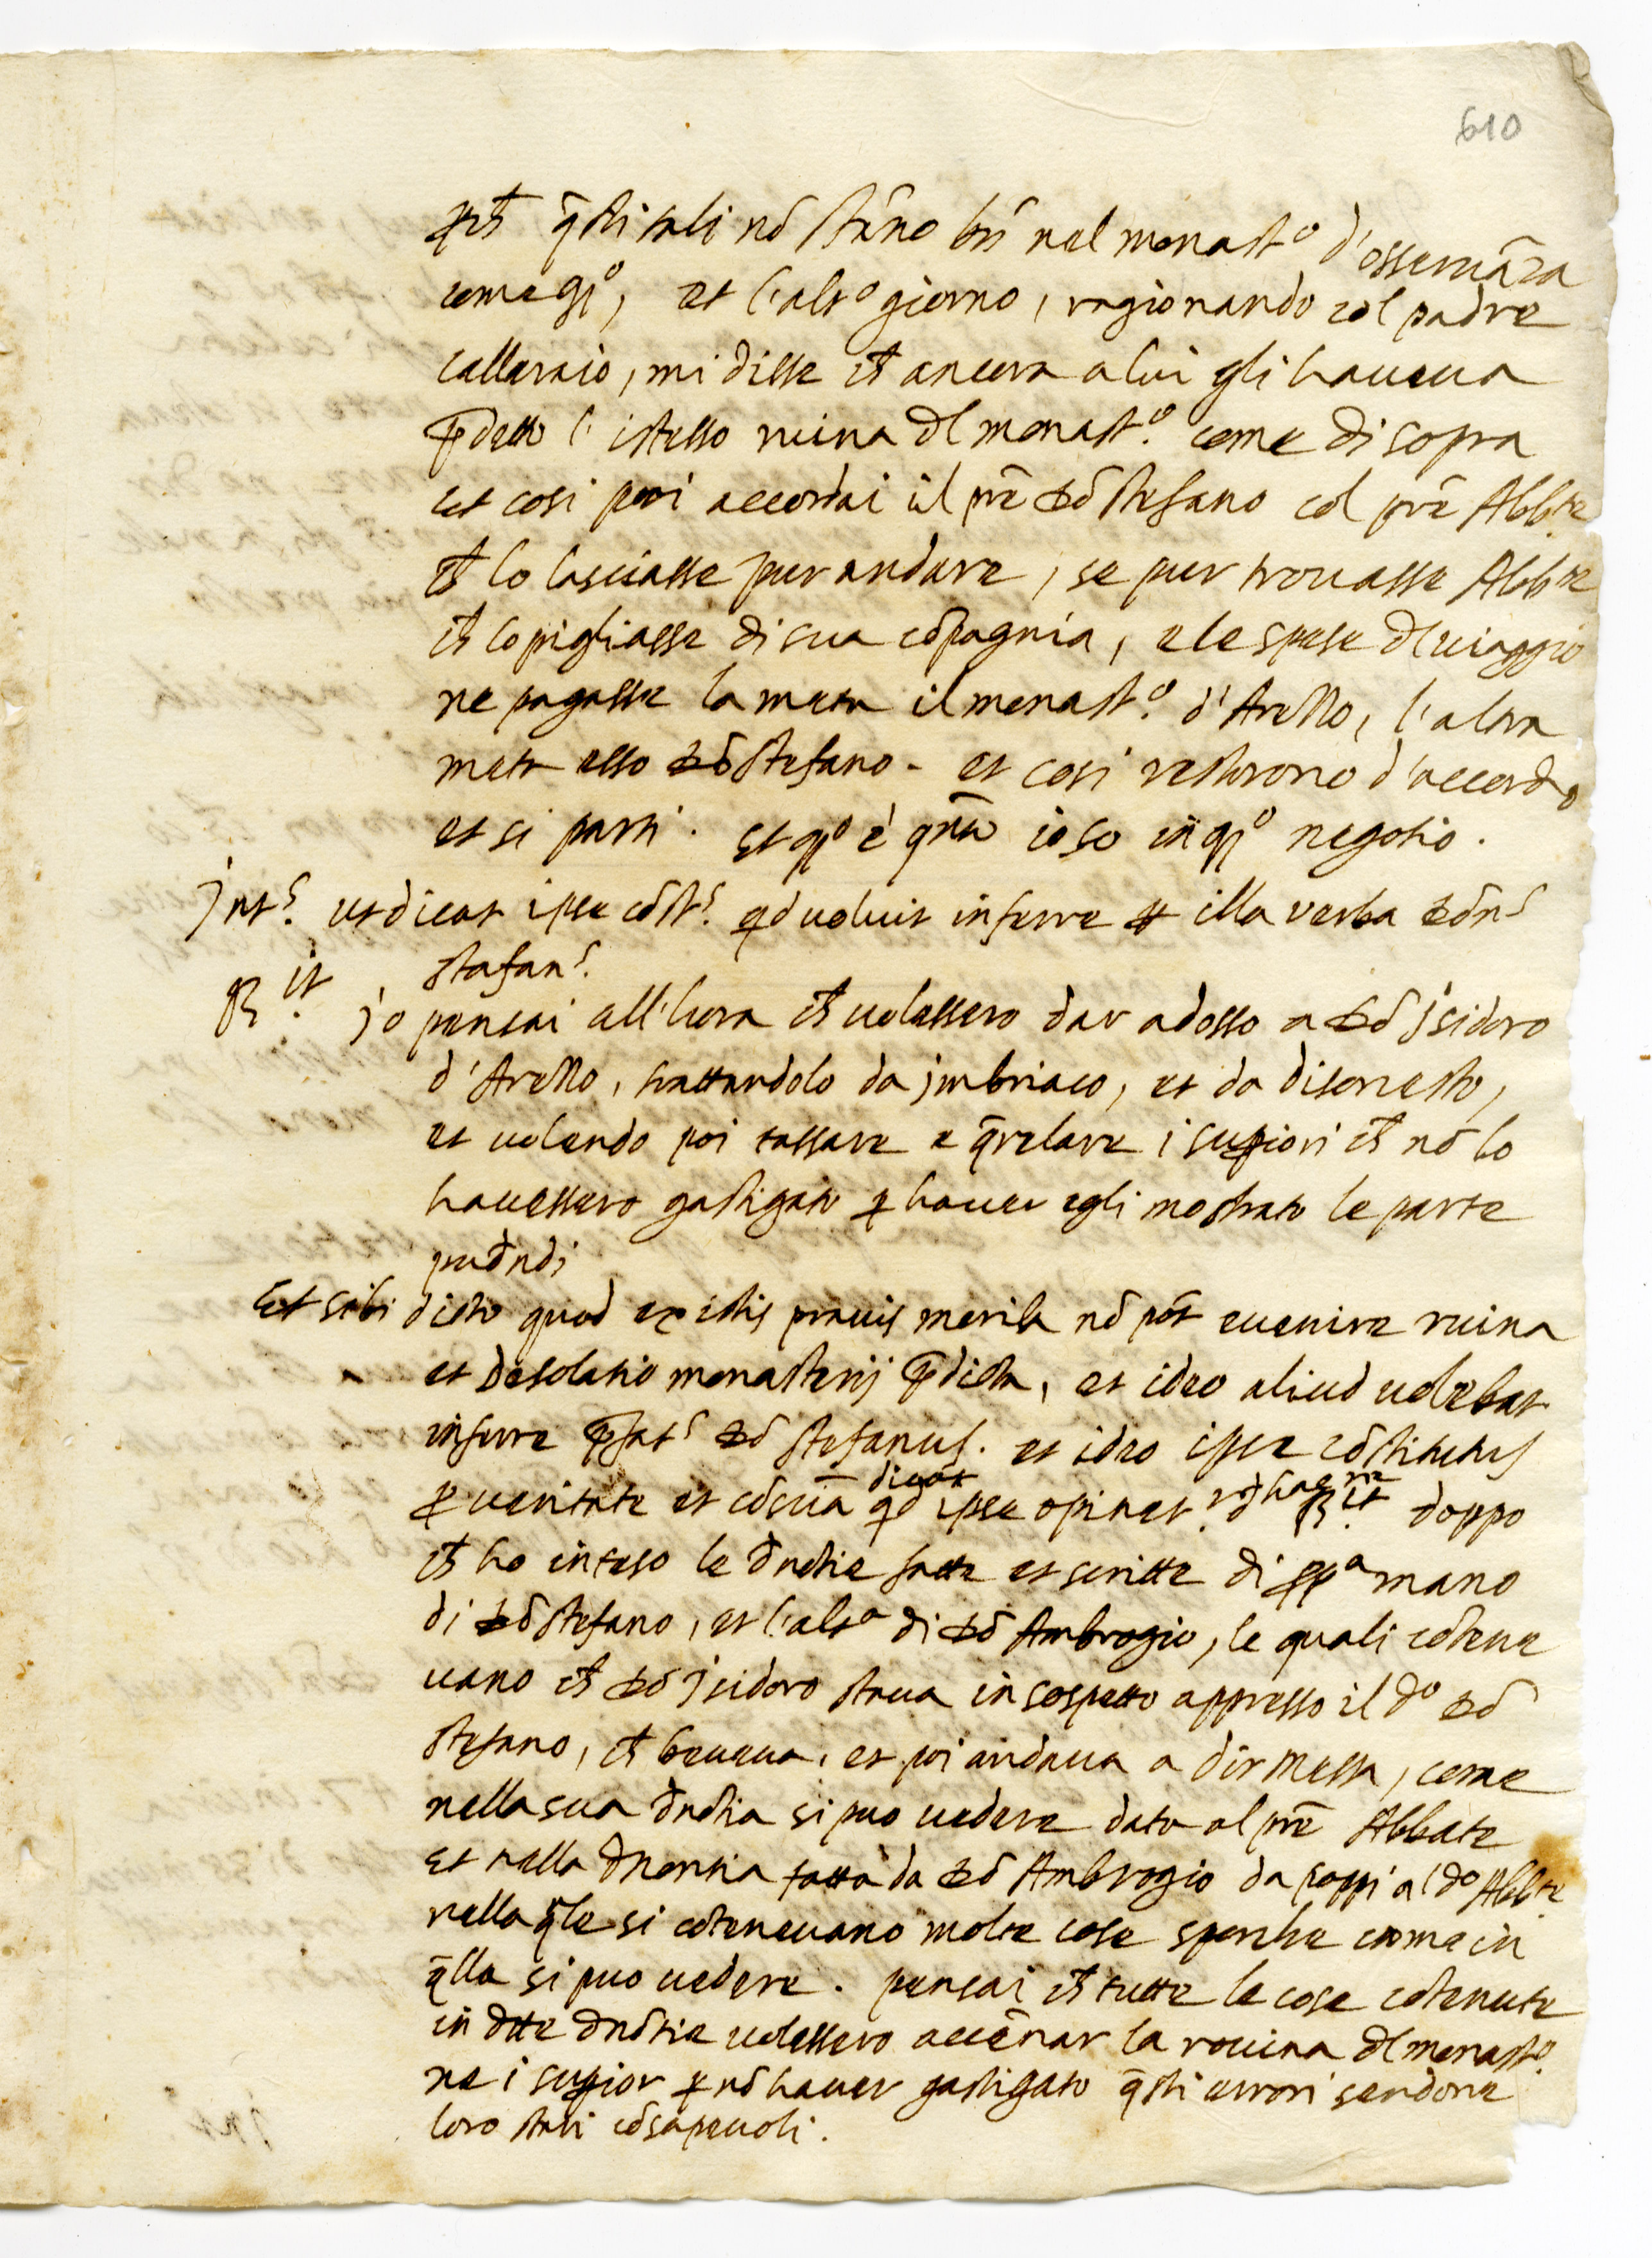 610
p̱ch̄ q̄sti tali nō stāno bn̄ nel monastº d'osseruāza
come q̄sº, et l'altº giorno, ragionando col padre
celleraio, mi disse ch̄ ancora a lui gli haueua
p̄detto l'istesso ruina dl monastº. come di sopra
et cosi poi accordai il prē Dō Stefano col prē Abbte
ch̄ lo lasciasse pur andare, se pur trouasse Abbte
ch̄ lo pigliasse di sua cōpagnia, e le spese dl uiaggio
ne pagasse la meta il monastº. d'Arezzo, l'altra
meta esso Dō Stefano - et cosi restorono d'accordo
et si parti. et qº è qnto io so in qº negotio.
Intˢ. ut dicat ipse cōstˢ. qd uoluit inferre p̱ illa verba Dōnˢ
Stefanˢ.
Rit. Io pensai all'hora ch̄ uolessero dar adosso a Dō Isidoro
d'Arezzo, trattandolo da imbriaco, et da disonesto,
et uolendo poi tassare e q̄relare i sup̱iori ch̄ nō lo
hauessero gastigato p̱ hauer egli mostrato le parte
pudn̄di
Et sibi dicto quod ex istis prauis morib. nō pōt euenire ruina
et desolatio monasterij p̄dicta, et ideo aliud uolebat
inferre p̄fatˢ Dō Stefanus. et ideo ipse cōstitutus
p̱ ueritate et cōscīa dicat qd ipse opinet. Rit. doppo
ch̄ ho inteso le dn̄otie fatte et scritte di pp̱ª mano
di Dō Stefano, et l'altª di Dō Ambrogio, le quali cōtene
uano ch̄ Dō Isidoro staua in sospetto appresso il dº Dō
Stefano, ch̄ beueua, et poi andaua a dir messa, come
nella sua dn̄otia si puo uedere data al prē Abbate
et nella dnontia fatta da Dō Ambrogio da poppi al dº Abbte.
nella q̄le si cōteneuano molte cose sporche come in
q̄lla si puo uedere. pensai ch̄ tutte le cose cōtenute
in dtte dnōtie uolessero accēnar la rouina dl monastº.
ne i sup̱ior p̱ nō hauer gastigato q̄sti errori sendone
loro stati cōsapeuoli.